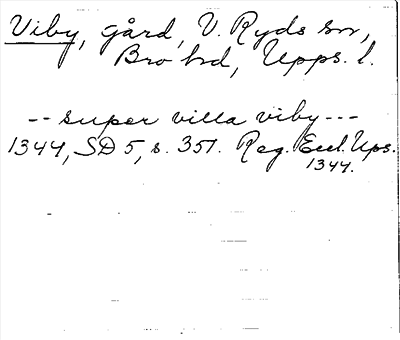 Viby, gård, V. Ryds sn,
Bro hd, Upps. l.
-- super villa viby ---
1344, SD 5, s. 351. Reg. Eccl. Ups.
1344.